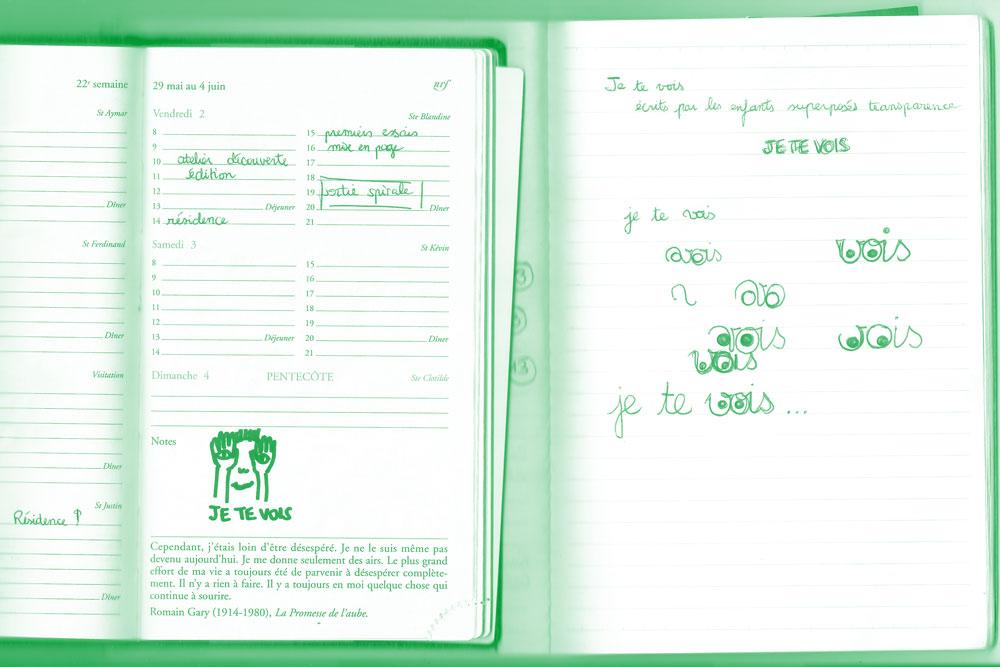 22e semaine
St Aymar
Dîner
St Ferdinand
Dîner
Visitation
Dîner
St Justin
Résidence
Dîner
29 mai au 4 juin
nrf
Vendredi 2
Ste Blandine
8
9
10 atelier découverte
11 édition
12
13 Déjeuner
14 résidence
15 premiers essais
16 mise en page
17
18
19 sortie spirale
20 Dîner
21
Samedi 3
St Kévin
8
9
10
11
12
13 Déjeuner
14
15
16
17
18
19
20 Dîner
21
Dimanche 4 PENTECÔTE Ste Clotilde
Notes
JE TE VOIS
Cependant, j'étais loin d'être désespéré. Je ne le suis même pas
devenu aujourd'hui. Je me donne seulement des airs. Le plus grand
effort de ma vie a toujours été de parvenir à désespérer complète-
ment. Il n'y a rien à faire. Il y a toujours en moi quelque chose qui
continue à sourire.
Romain Gary (1914-1980), La Promesse de l'aube.
Je te vois
écrits par les enfants superposés transparence
JE TE VOIS
je te vois
vois vois
vois vois
vois
je te vois ...